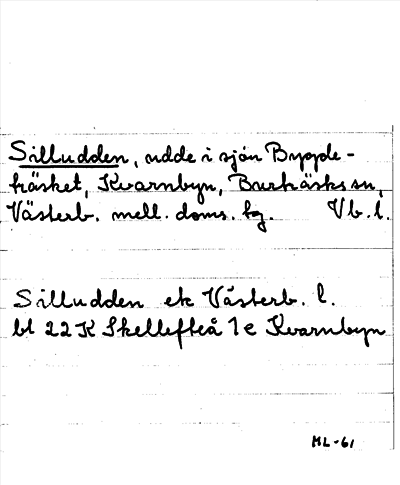 Silludden, udde i sjön Bygde-
träsket, Kvarnbyn, Burträsks sn,
Västerb. mell. doms. tg. Vb. l.
Silludden ek Västerb. l.
bl 22K Skellefteå 1e Kvarnbyn
ML-61